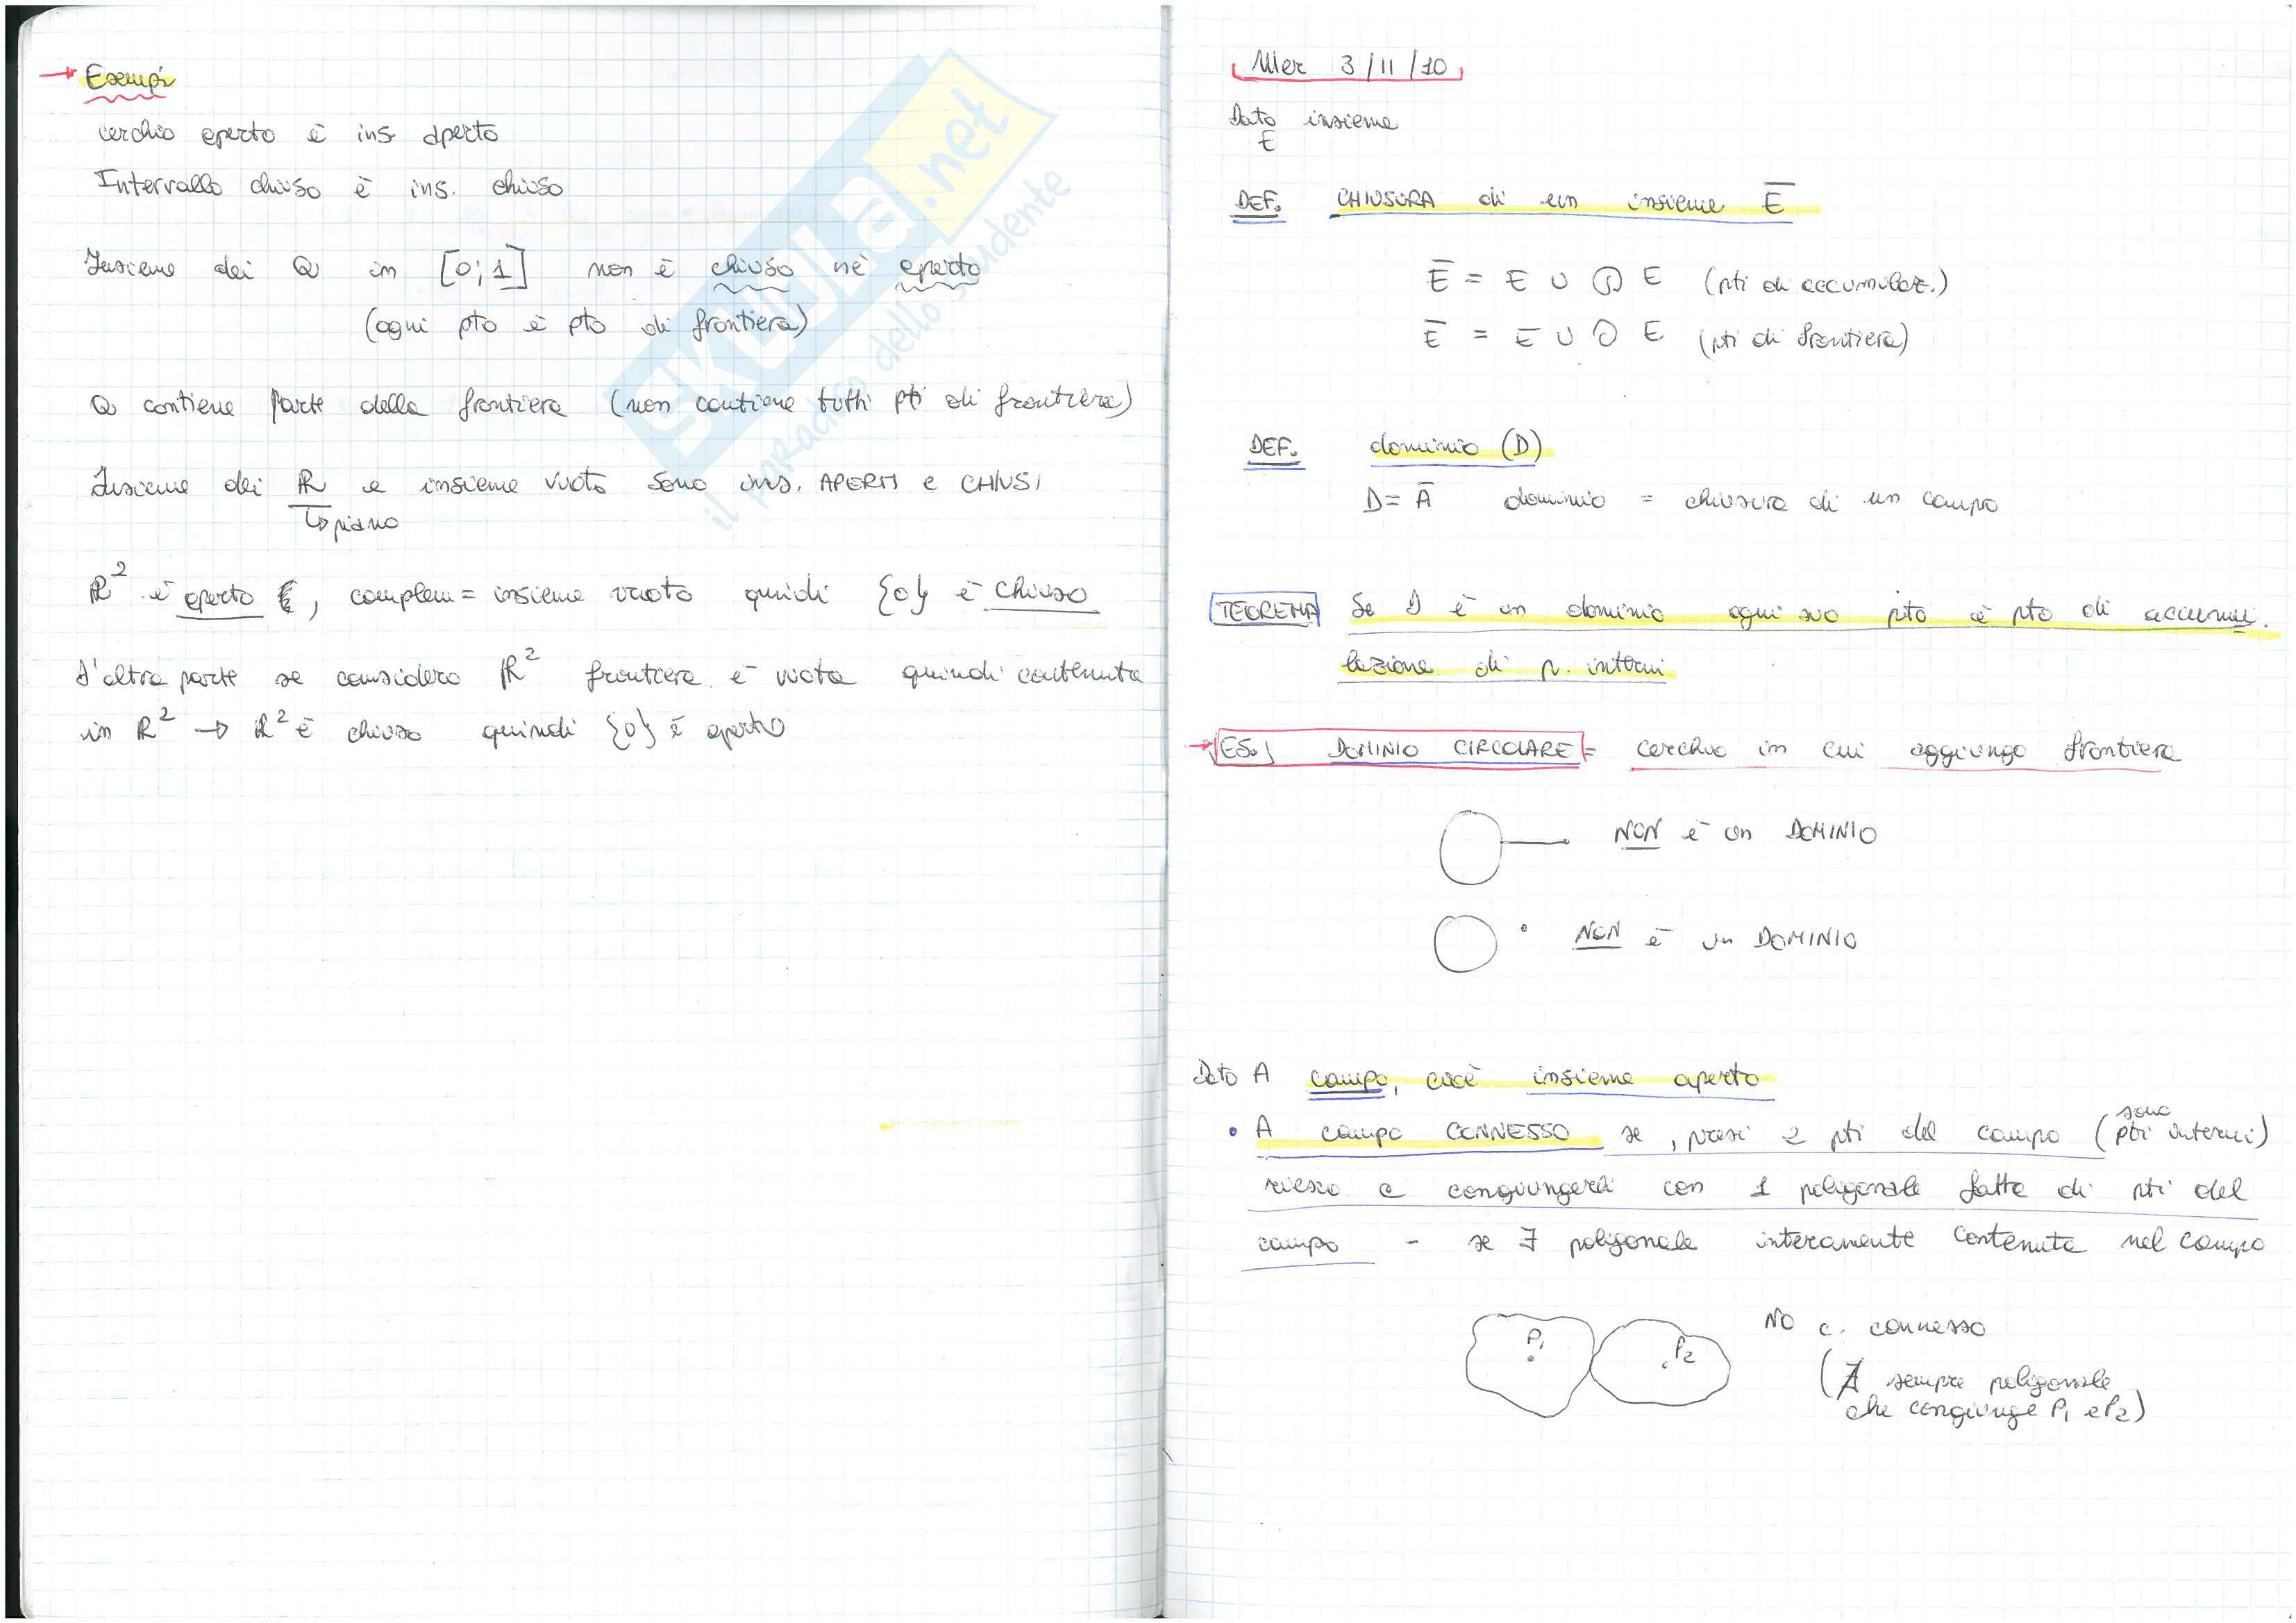 → Esempi
cerchio aperto è ins aperto
Intervallo chiuso è ins. chiuso
Insieme dei Q in [0;1] non è chiuso nè aperto
(ogni pto è pto di frontiera)
Q contiene parte della frontiera (non contiene tutti pti di frontiera)
Insieme dei R e insieme vuoto sono ins. APERTI e CHIUSI
↳ piano
R² è aperto, complem = insieme vuoto quindi {0} è chiuso
D'altra parte se considero R² frontiera è vuota quindi contenuta
in R² → R² è chiuso quindi {0} è aperto
SKUOLa.net
il paradiso dello studente
Mer 3/11/10
Dato insieme
E
DEF. CHIUSURA di un insieme E̅
E̅ = E ∪ E (pti di accumulaz.)
E̅ = E ∪ E (pti di frontiera)
DEF. dominio (D)
D = A̅ dominio = chiusura di un campo
TEOREMA Se D è un dominio ogni suo pto è pto di accumu-
lazione di p. interni
→ ES. DOMINIO CIRCOLARE = cerchio in cui aggiungo frontiera
NON è un DOMINIO
NON è un DOMINIO
Dato A campo, cioè insieme aperto
• A campo CONNESSO se, presi 2 pti del campo (sono pti interni)
riesco a congiungerli con 1 poligonale fatta di pti del
campo - se ∃ poligonale interamente contenuta nel campo
P1 P2
NO c. connesso
(∄ sempre poligonale
che congiunge P1 e P2)